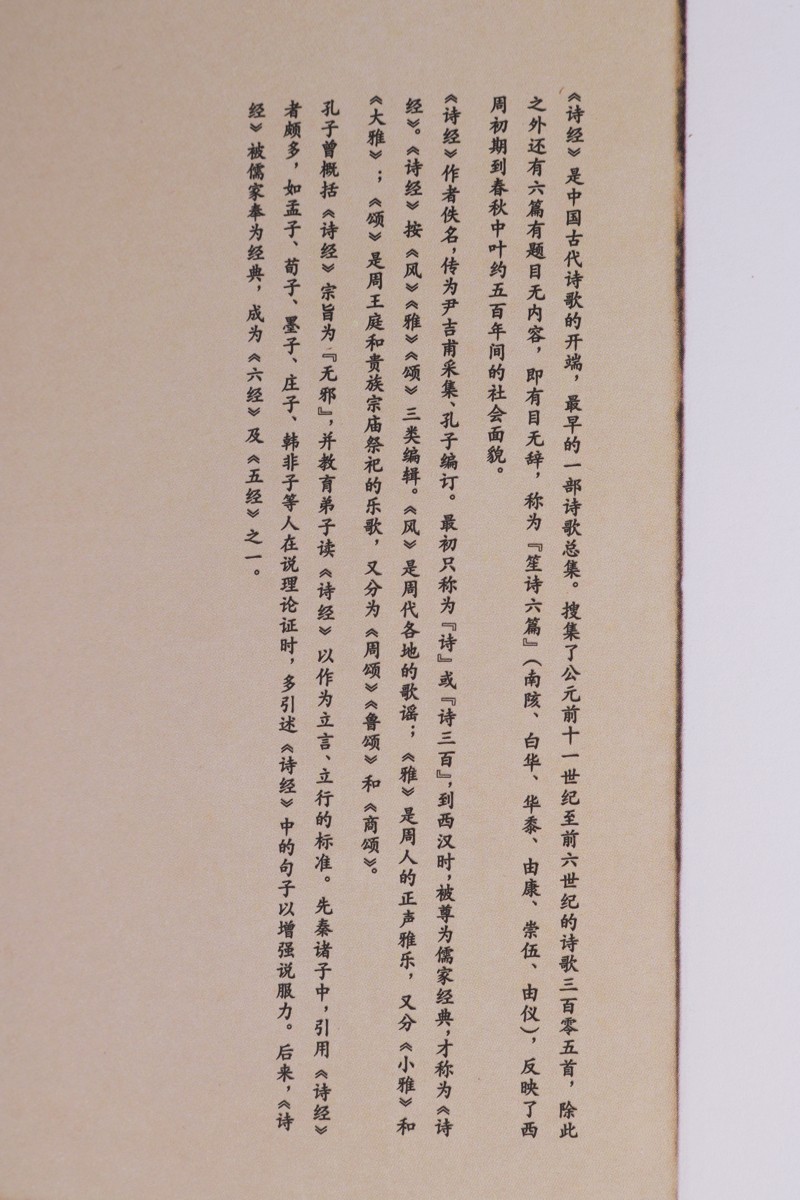 《诗经》是中国古代诗歌的开端，最早的一部诗歌总集。搜集了公元前十一世纪至前六世纪的诗歌三百零五首，除此
之外还有六篇有题目无内容，即有目无辞，称为『笙诗六篇』（南陔、白华、华黍、由康、崇伍、由仪），反映了西
周初期到春秋中叶约五百年间的社会面貌。
《诗经》作者佚名，传为尹吉甫采集、孔子编订。最初只称为『诗』或『诗三百』，到西汉时，被尊为儒家经典，才称为《诗
经》。《诗经》按《风》《雅》《颂》三类编辑。《风》是周代各地的歌谣；《雅》是周人的正声雅乐，又分《小雅》和
《大雅》；《颂》是周王庭和贵族宗庙祭祀的乐歌，又分为《周颂》《鲁颂》和《商颂》。
孔子曾概括《诗经》宗旨为『无邪』，并教育弟子读《诗经》以作为立言、立行的标准。先秦诸子中，引用《诗经》
者颇多，如孟子、荀子、墨子、庄子、韩非子等人在说理论证时，多引述《诗经》中的句子以增强说服力。后来，《诗
经》被儒家奉为经典，成为《六经》及《五经》之一。